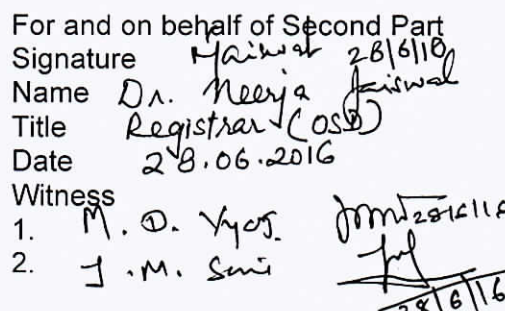 For and on behalf of Second Part
Signature Njaiswal 28/6/16
Name Dr. Neerja Jaiswal
Title Registrar (OSD)
Date 28.06.2016
Witness
1. M. D. Vyas 28/6/16
2. J. M. Soni
28/6/16